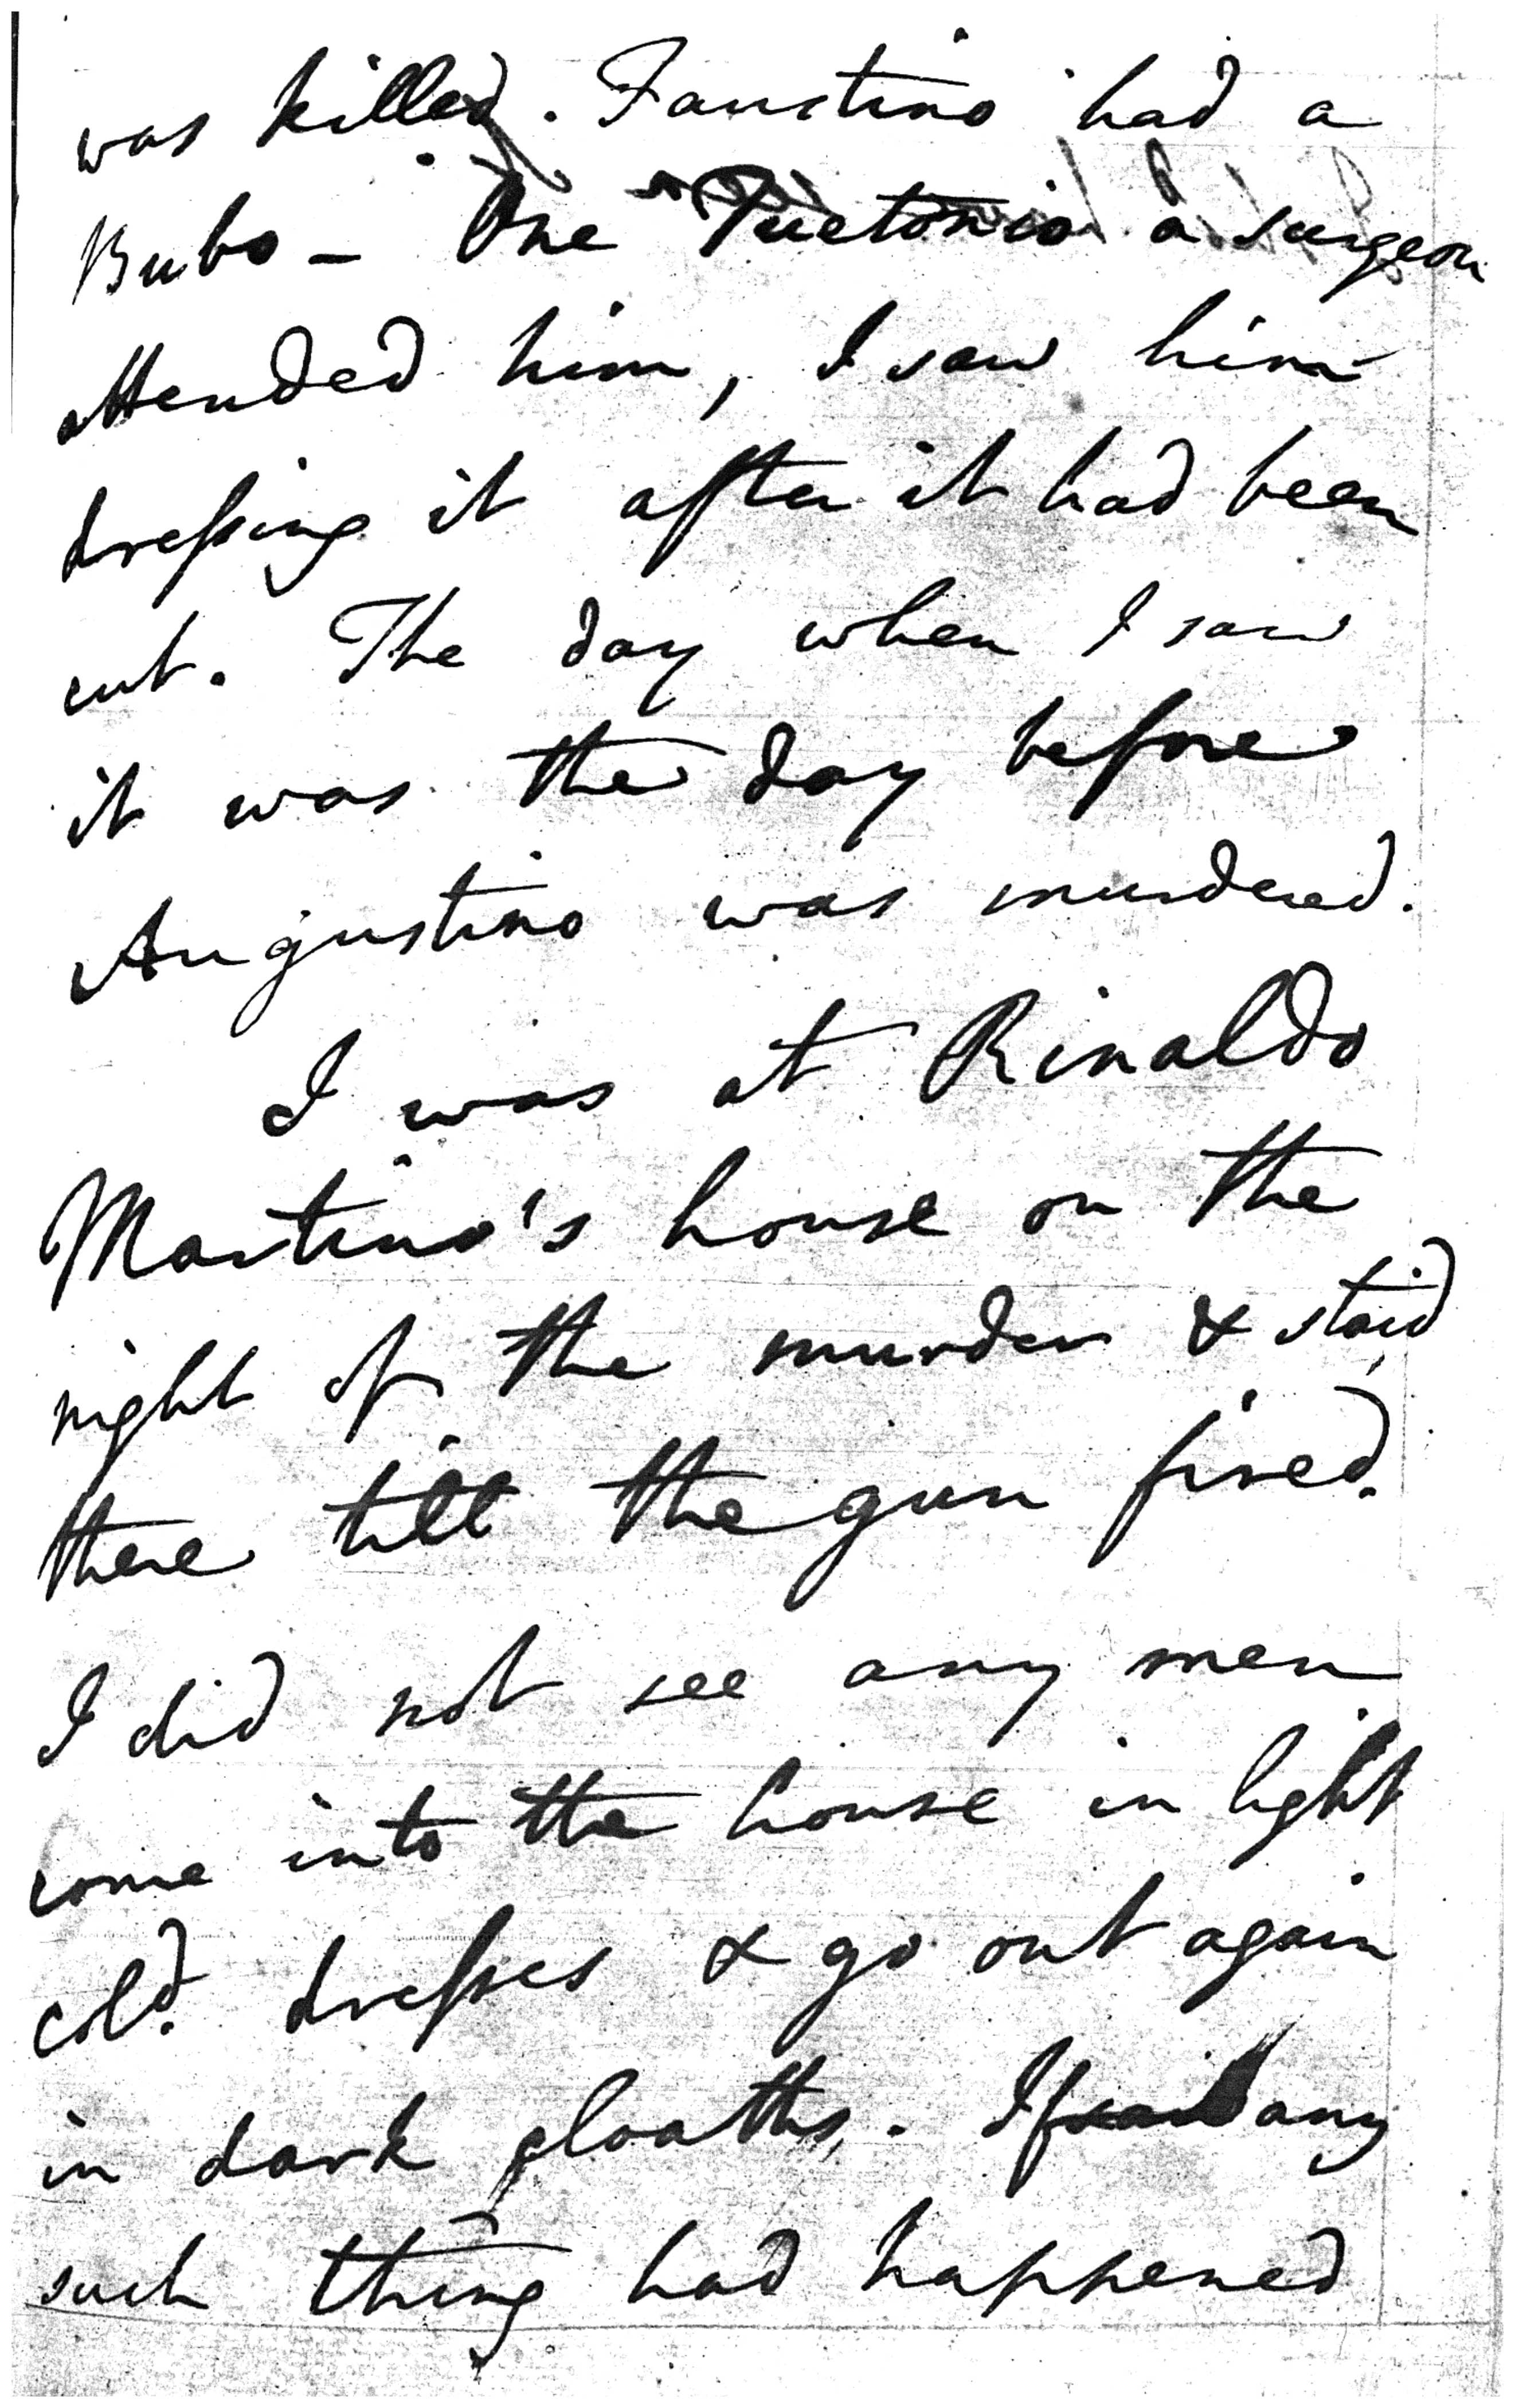 was killed. Faustino had a
Bubo — One Puetonio a surgeon
attended him, I saw him
dressing it after it had been
cut. The day when I saw
it was the day before
Augustino was murdered.
I was at Rinaldo
Martino's house on the
night of the murder & staid
there till the gun fired.
I did not see any men
come into the house in light
cold. dresses & go out again
in dark cloaths. If any
such thing had happened